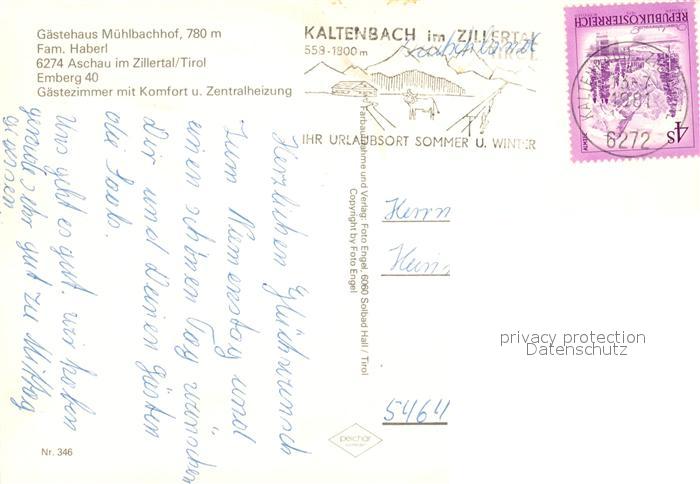 Gästehaus Mühlbachhof, 780 m
Fam. Haberl
6274 Aschau im Zillertal/Tirol
Emberg 40
Gästezimmer mit Komfort u. Zentralheizung
KALTENBACH im ZILLERTAL
559-1800 m
TIROL
IHR URLAUBSORT SOMMER U. WINTER
REPUBLIK ÖSTERREICH
4 S
1981
6272
Herzlichen Glückwunsch
zum Namenstag und
einen schönen Tag wünschen
Dir und Deinen Gästen
die
Uns geht es gut. wir haben
gerade sehr gut zu Mittag
gegessen.
Farbaufnahme und Verlag: Foto Engel, 6060 Solbad Hall / Tirol
Copyright by Foto Engel
Herrn
Hein
5464
privacy protection
Datenschutz
peichär
Nr. 346